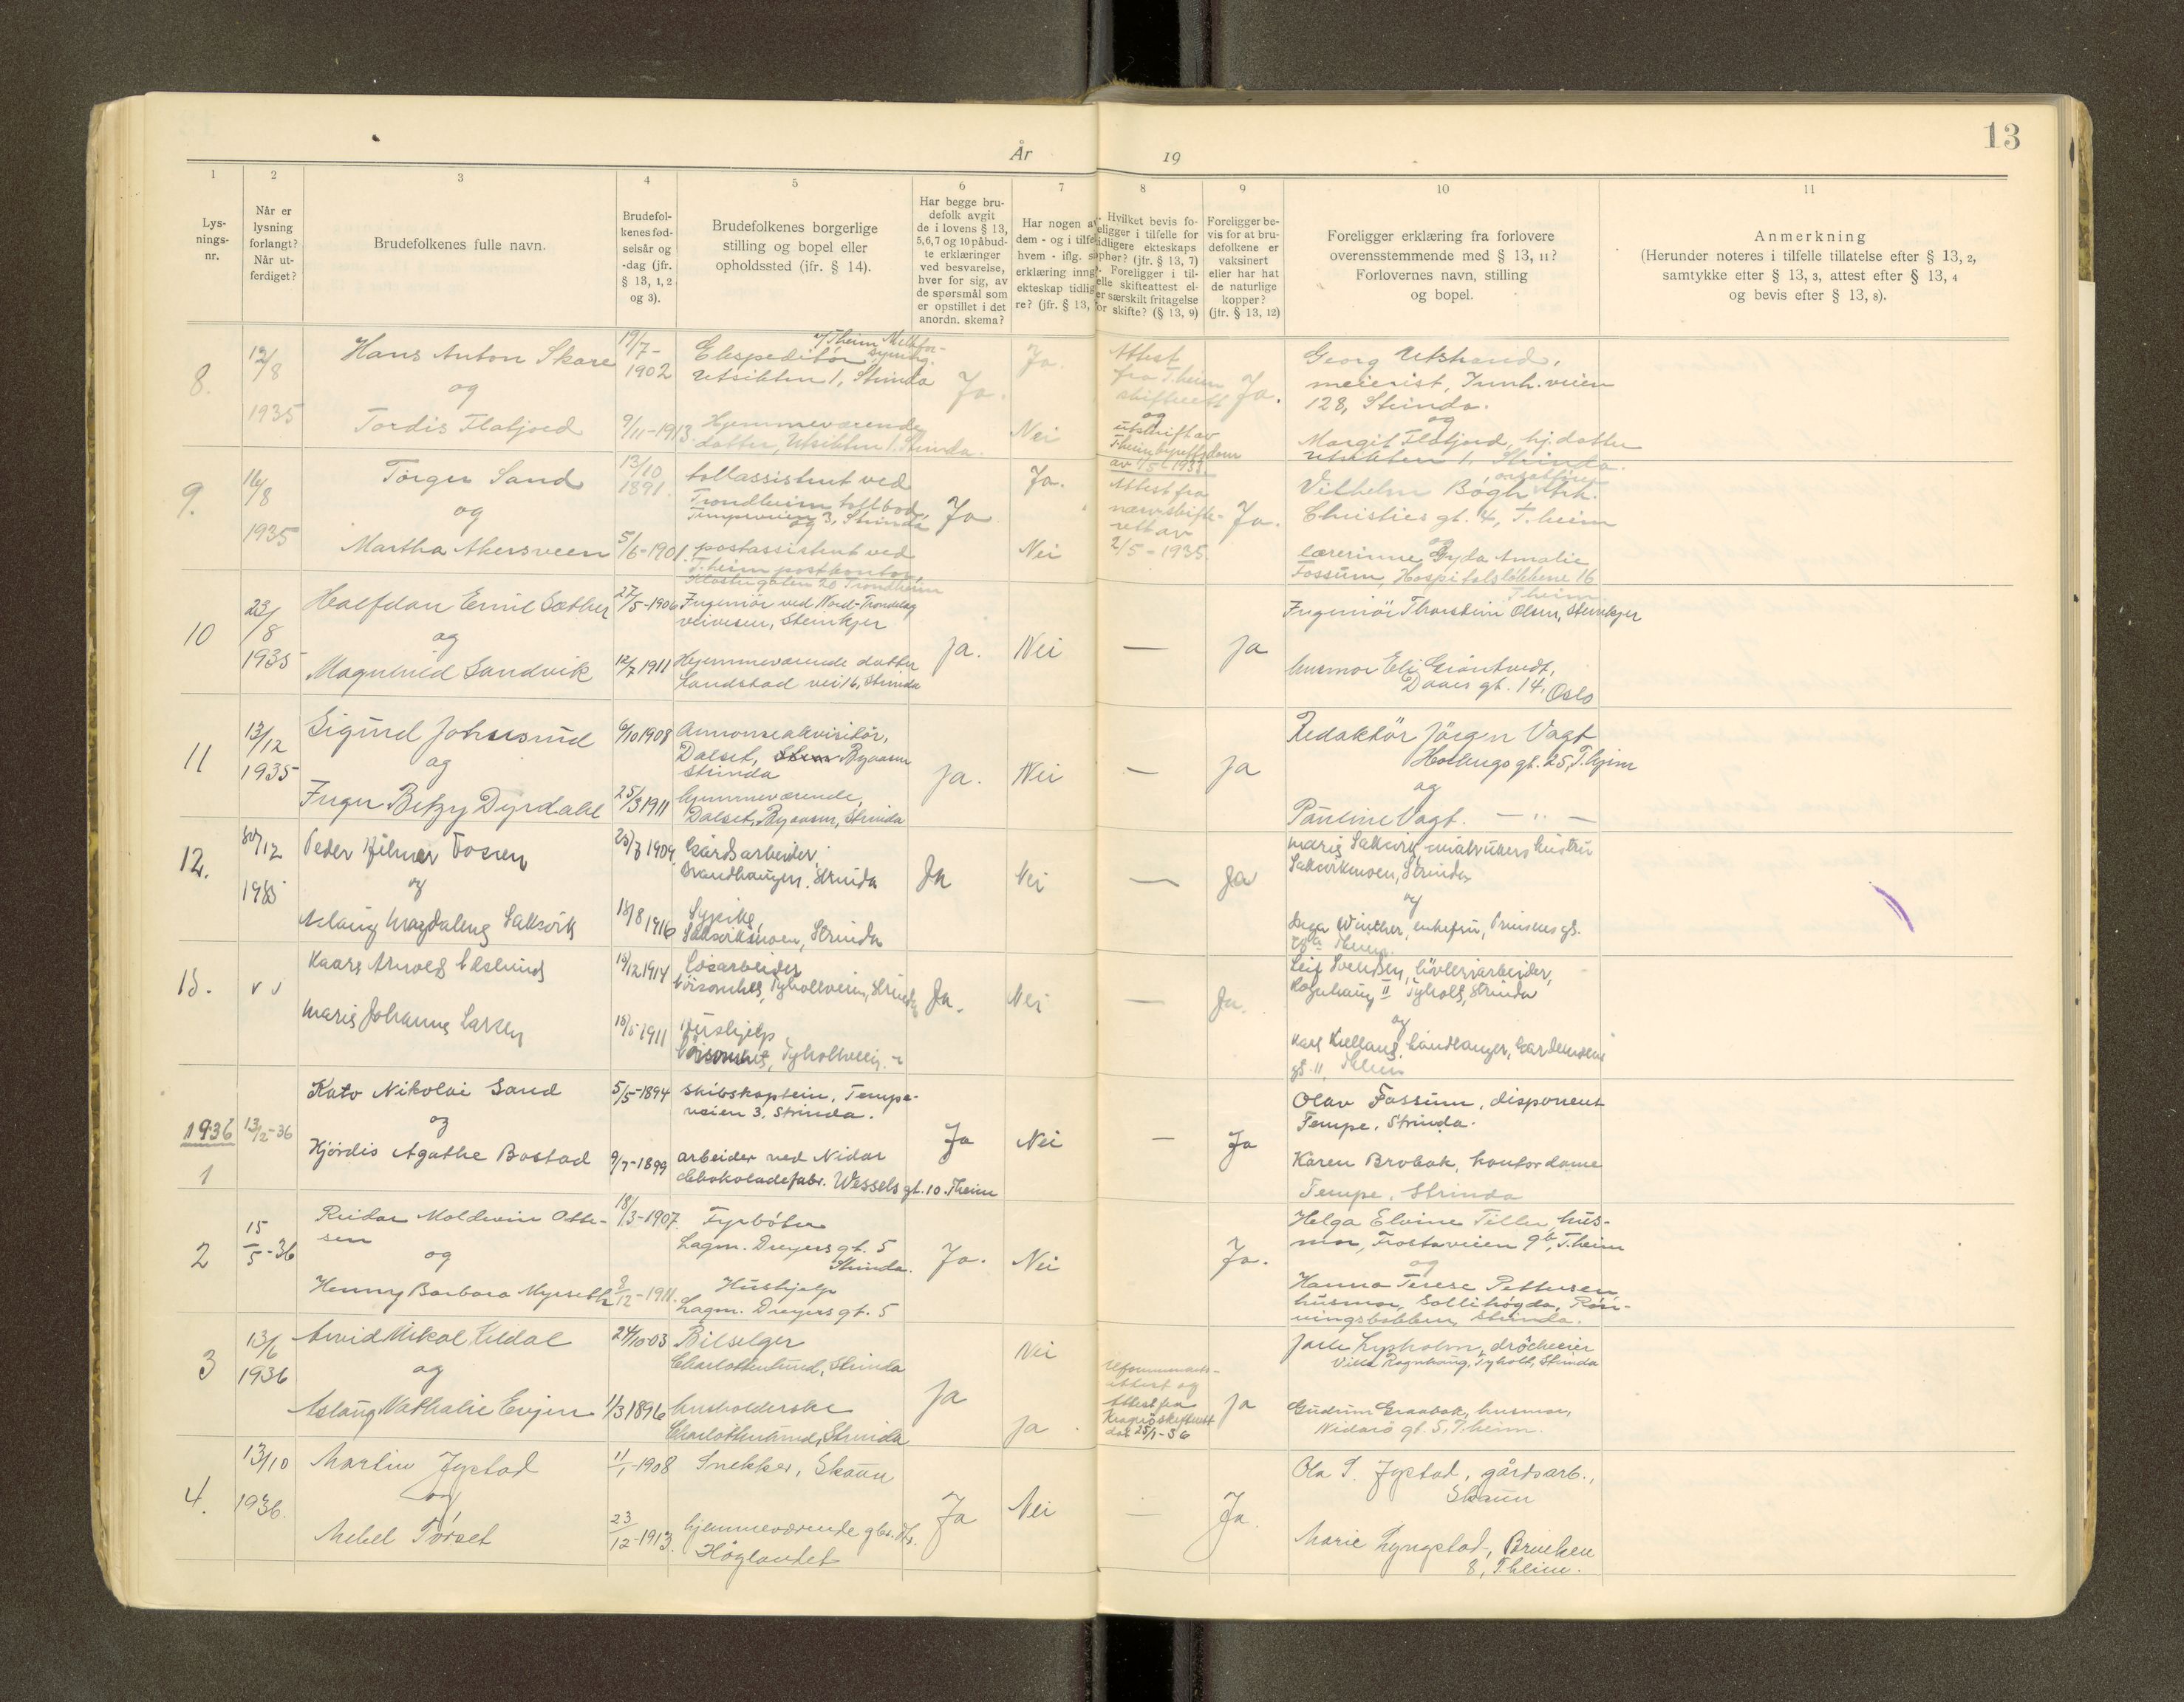 13
År 19
1 2 3 4 5 6 7 8 9 10 11
Lys-
nings-
nr.
Når er
lysning
forlangt?
Når ut-
ferdiget?
Brudefolkenes fulle navn.
Brudefol-
kenes fød-
selsår og
-dag (jfr.
§ 13, 1, 2
og 3).
Brudefolkenes borgerlige
stilling og bopel eller
opholdssted (jfr. § 14).
Har begge bru-
defolk avgit
de i lovens § 13,
5,6,7 og 10 påbud-
te erklæringer
ved besvarelse,
hver for sig, av
de spørsmål som
er opstillet i det
anordn. skema?
Har nogen av
dem - og i tilfelle
hvem - iflg.
erklæring inng
ekteskap tidlig
re? (jfr. § 13,
Hvilket bevis fo-
religger i tilfelle for
tidligere ekteskaps
ophør? (jfr. § 13, 7)
Foreligger i til-
felle skifteattest el-
er særskilt fritagelse
for skifte? (§ 13, 9)
Foreligger be-
vis for at bru-
defolkene er
vaksinert
eller har hat
de naturlige
kopper?
(jfr. § 13, 12)
Foreligger erklæring fra forlovere
overensstemmende med § 13, 11?
Forlovernes navn, stilling
og bopel.
Anmerkning
(Herunder noteres i tilfelle tillatelse efter § 13, 2,
samtykke efter § 13, 3, attest efter § 13, 4
og bevis efter § 13, 8).
8.
12/8
1935
Hans Anton Skare
og
Tordis Flatjord
19/7-
1902
9/11-1913.
v/T.heim Melkfor-
syning.
Ekspeditør
Utsikten 1, Strinda
Hjemmeværende
datter, Utsikten 1. Strinda.
Ja.
Ja.
Nei
Attest
fra T.heim
skifterett
og
utskrift av
av 1/5 1933
Ja.
Georg
meierist, Innh. veien
128, Strinda.
og
Margit Flatjord, hj. datter
Utsikten 1. Strinda.
9.
16/8
1935
Torger Sand
og
Martha Akersveen
13/10
1891
5/6-1901.
tollassistent ved
Trondheim tollbod,
Tempeveien 3, Strinda
og
postassistent ved
T.heim postkontor,
Klostergaten 20 Trondheim
Ja
Ja.
Nei
Attest fra
rett av
2/5-1935.
Ja.
Vilhelm Bøgh
Christies gt. 4, T.heim
og
lærerinne Gyda Amalie
Fossum, Hospitalsløkkene 16
T.heim.
10
23/8
1935
Halfdan Emil Sæther
og
Magnhild Sandvik
27/5-1906
12/7 1911
Ingeniør ved Nord-Trøndelag
veivesen, Steinkjer
Hjemmeværende datter
Landstad vei 16, Strinda
Ja.
Nei
—
Ja
Ingeniør Thorstein Olsen, Steinkjer
husmor Eli Gröntvedt,
Daaes gt. 14, Oslo
11
13/12
1935
Sigurd Johnsrud
og
Inger Betzy Dyrdahl
6/10 1908
25/3 1911
Annonseakvisitör,
Dalset, Byaasen
Strinda
hjemmeværende,
Dalset, Byaasen, Strinda
Ja.
Nei
—
Ja
Redaktör Jörgen Vagt
gt. 25, T.hjem
og
Pauline Vagt. — " —
12.
30/12
1935
Peder Hilmer
og
Aslaug Magdalene Saksvik
1904
18/8 1916
Gårdsarbeider,
Strinda
Sypike,
Saksvikmoen, Strinda
Ja
Nei
—
Ja
Marie Saksvik,
Saksvikmoen, Strinda
og
Winther, enkefru, Prinsens gt.
13.
Kaare Arnold
Marie Johanne Larsen
18/12 1914
1911
Løsarbeider
Tyholtveien, Strinda
Hushjelp
Tyholtveien
Ja.
Nei
—
Ja.
Leif Svendsen,
Tyholt, Strinda
og
1936
1
13/2-36
Kato Nikolai Sand
og
Hjördis Agathe Bostad
5/5-1894
9/7-1899
skibskaptein, Tempe-
veien 3, Strinda.
arbeider ved Nidar
chokoladefabr. Wessels gt. 10. T.heim
Ja
Nei
—
Ja
Olav Fossum, disponent
Tempe, Strinda.
Karen Brobak, kontordame
Tempe, Strinda
2
15/5-36
Reidar Moldevin Otte-
sen
og
Henny Barbara Myrseth
18/3-1907.
9/12-1911.
Fyrbøter
Lagm. Dreyers gt. 5
Strinda.
Hushjelp
Lagm. Dreyers gt. 5
Ja.
Nei
Ja.
Helga Elvine Tiller, hus-
mor, Frostaveien 9b, T.heim
og
Hanna Terese Pettersen,
husmor, Sollihøgda, Røn-
ningsbakken, Strinda.
3
13/6
1936
Arvid Mikal Kildal
og
Aslaug Nathalie Evjen
24/10-03
11/3 1896
Bilselger
Charlottenlund, Strinda
husholderske
Charlottenlund, Strinda
Ja
Nei
Ja
attest og
Attest fra
Kragerø skifterett
dat. 25/1-36
Ja
Jarle Lysholm, dröcheeier
Villa Rognhaug, Tyholt, Strinda
Gudrun Graabak, husmor,
Nidarö gt. 5, T.heim.
4.
13/10
1936.
Martin Jystad
og
Mekel Tørset
11/1-1908
23/12-1913.
Snekker, Skaun
hjemmeværende gbr. dtr.
Höylandet
Ja
Nei
—
Ja.
Ola P. Jystad, gårdsarb.,
Skaun
Marie Lyngstad, Brinken
8, T.heim.